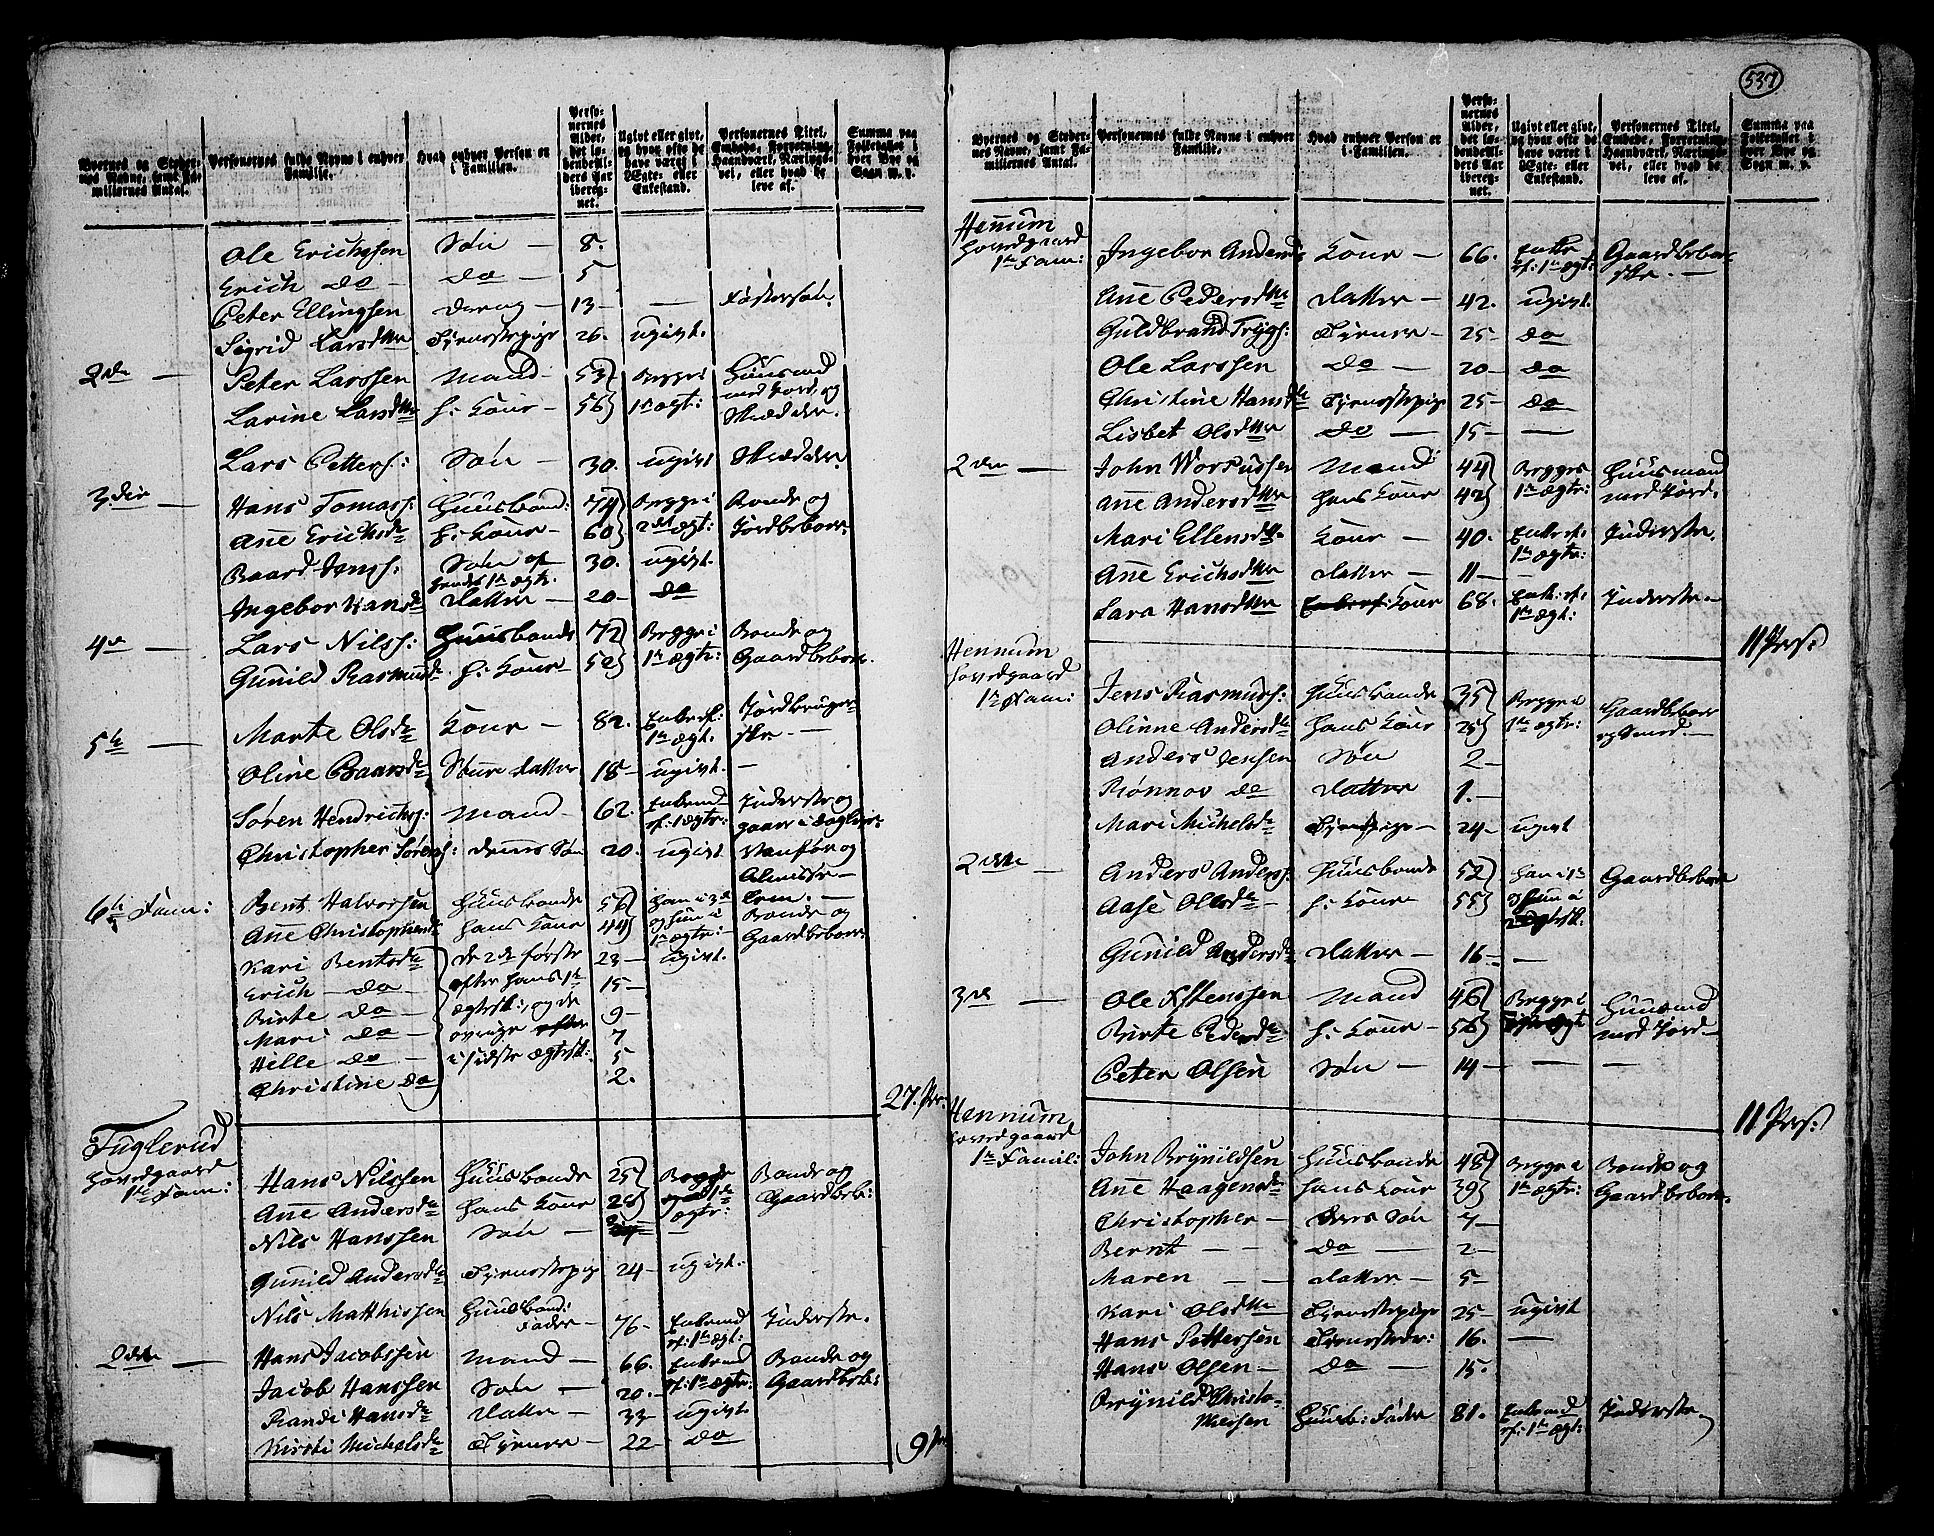 537
Byernes og Steder-
nes Navne, samt Fa-
miliernes Antal.
Personernes fulde Navne i enhver
Familie.
Hvad enhver Person er
i Familien.
Perso-
nernes
Alder,
det lø-
bendeAl-
ders Aar
ibereg-
net.
Ugivt eller givt,
og hvor ofte de
have været i
Ægte- eller
Enkestand.
Personernes Titel,
Embede, Forretning,
Haandværk, Nærings-
vei, eller hvad de
leve af.
Summa paa
Folketallet i
hver Bye og
Sogn m. v.
Ole Erichssen Søn — 8.
Erich do - do — 5
Peter Ellingsen dreng — 13 — Fostersøn.
Sigrid Larsdtter Tjenestepige 26. ugivt.
2de — Peter Larssen Mand 53 Begge i Huusmd
Larine Larsdtter h: Kone 56 1te ægt: med Jord og
Skrædder.
Lars Petters: Søn — 30. ugivt Skrædder.
3die — Hans Tomass: Huusbond: 74 Begge i Bonde og
Ane Erichsdr h: Kone 60 2det ægt: Jordbeboer.
Baard Jens: Søn af 30. ugivt.
hendes 1te ægt:
Ingebor Hansdr datter 20 do
4de — Lars Nilss: Huusbonde 72 Begge i Bonde og
Gunild Rasmusdr h: Kone 52 1te ægt: Gaardbeboer.
5te — Marte Olsdr Kone — 82. Enke ef: Jordbruger-
1te ægt. ske. —
Oline Baarsdr datter 18 — ugivt. —
Søren Hendrichs: Mand 62. Enkemd Inderste og
ef: 1 ægt: gaaer i dagleie:
Christopher Sørens: dennes Søn 20. ugivt. Vanfør og
Almisse-
lem. —
6te Fam: Bent Halvorsen Huusbonde 56 han i 3de Bonde og
Ane Christophersdr hans Kone 44 og hun i Gaardbeboer.
1te ægt:
Kari Bentsdr de 2de første 23 — ugivt.
Erich — do — efter hans 1te 15 —
Birte do — ægtesk:, og de 9 —
Mari do — øvrige 7
Hille do — i sidste ægtesk: 5
Christine do 2.
27. Prs:
Fuglerud
hovedgaard
1te Fam: Hans Nilssen Huusbonde 25 Begge Bonde og
Ane Andersdr hans Kone 28 1te Gaardbeb:
ægt:
Nils Hanssen Søn —
Gunild Andersdr Tjenestepige 24 — ugivt.
Nils Matthissen Huusbond: 76 — Enkemd Inderste.
Fader — ef: 1te ægt:
2den — Hans Jacobssen Mand — 66. Enkemd Bonde og
Jacob Hanssen Søn — 20. ef: 1te ægt: Gaardbeb:
Randi Hansdr datter — 33 ugivt
Kirsti Michelsdr Tjener — 22 — do
9 Prs
Byernes og Steder-
nes Navne, samt Fa-
miliernes Antal.
Personernes fulde Navne i enhver
Familie.
Hvad enhver Person er
i Familien.
Perso-
nernes
Alder,
det lø-
bendeAl-
ders Aar
ibereg-
net.
Ugivt eller givt,
og hvor ofte de
have været i
Ægte- eller
Enkestand.
Personernes Titel,
Embede, Forretning,
Haandværk, Nærings-
vei, eller hvad de
leve af.
Summa paa
Folketallet i
hver Bye og
Sogn m. v.
Hennum
hovedgaard
1te Fam: Ingebor Anders Kone — 66. Enke Gaardbeboer-
ef: 1te ægt: ske. —
Ane Pedersdtter datter — 42. ugivt.
Guldbrand Trygs: Tjener — 25 — do
Ole Larssen do — 20 — do
Christine Hansdr Tjenestepige 25 — do
Lisbet Olsdtter do — 15 — —
2den — John Mand 44 Begge i Huusmand
Ane Andersdtter hans Kone 42 1te ægt: med Jord.
Mari Ellensdtr. Kone — 40. Enke ef: Inderste.
1te ægt:
Ane Erichsdtter datter — 11 —
Lara Hansdtter Kone 68. Enke ef: Inderste —
1te ægt:
11 Prs:
Hennum
hovedgaard
1te Fam: Jens Rasmuss: Huusbonde 35 Begge i Gaardbeboer
Olinne Andersdr hans Kone 25 1te ægt: og Smed. —
Anders Jensen Søn 2 —
Rønnov do datter 1. —
Mari Michelsdr Tjenestpige — 24 — ugivt
2den — Anders Anderss: Huusbonde 52 han i 1te Gaardbeboer
Aase Olsdr — h: Kone 55 og hun i
ægtesk:
Gunild Andersdr datter — 16 — —
3de — Ole Mand 46 Begge i Huusmd
Birte Pedersdr h: Kone — 56 med Jord —
Peter Olsen Søn — 14 — — —
11 Prs:
Hennum
hovedgaard
1te Famil: John Brynildsen Huusbonde 48 Begge i Bonde og
Ane Haagensdr hans Kone 39 1te ægt: Gaardbeboer.
Christopher — deres Søn 7 —
Bernt — — do — 2 —
Maren — — datter — 5 —
Kari Olsdtter Tjenestepige 25 — ugivt
Hans Pettersen Tjenestedr: 16. —
Hans Olsen — do — 15.
Brynild Christo-
Huusb: Fader 81. Enkemd Inderste
ef: 1te ægt: